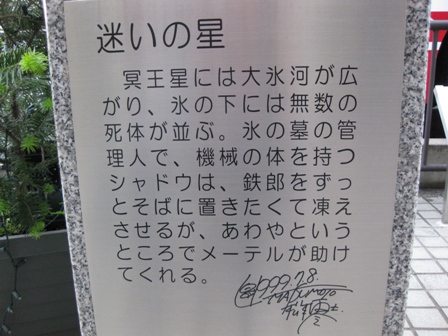 迷いの星
冥王星には大氷河が広
がり、氷の下には無数の
死体が並ぶ。氷の墓の管
理人で、機械の体を持つ
シャドウは、鉄郎をずっ
とそばに置きたくて凍え
させるが、あわやという
ところでメーテルが助け
てくれる。
1999.7.8.